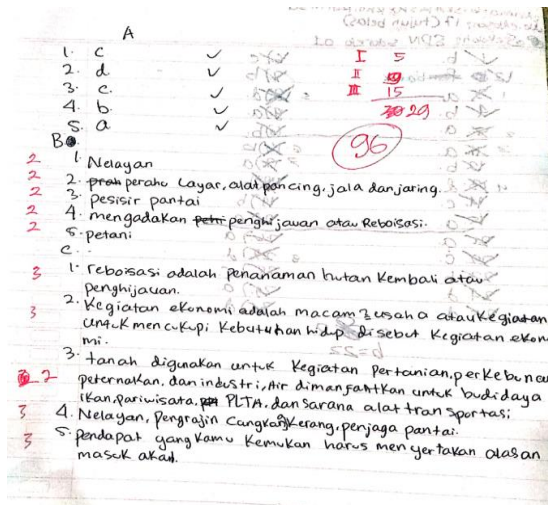 A
1. c ✓ I 5
2. d ✓ II 9
3. c. ✓ III 15
4. b. ✓ 29
5. a ✓ 96
B
2 1. Nelayan
2 2. perahu Layar, alat pancing, jala dan jaring.
2 3. pesisir pantai
2 4. mengadakan penghijauan atau Reboisasi.
2 5. petani
C. .
3 1. reboisasi adalah penanaman hutan Kembali atau
penghijauan.
3 2. Kegiatan ekonomi adalah macam2 usaha atau kegiatan
untuk mencukupi Kebutuhan hidup disebut Kegiatan ekon
mi.
3. tanah digunakan untuk Kegiatan Pertanian, perkebuna
2 peternakan, dan industri, Air dimanfahtkan untuk budidaya
ikan, pariwisata, PLTA, dan sarana alat transportasi
3 4. Nelayan, Pengrajin Cangkang Kerang, penjaga pantai.
3 5. pendapat yang kamu Kemukan harus menyertakan alasan
masuk akal.